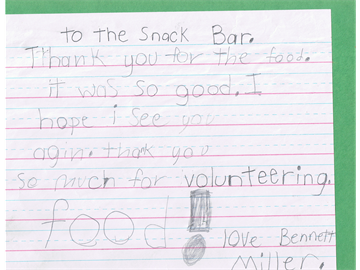 to the Snack Bar.
Thank you for the food.
it was so good. I
hope i see you
agin. thank you
so much for volunteering.
food!
love Bennett
Miller.